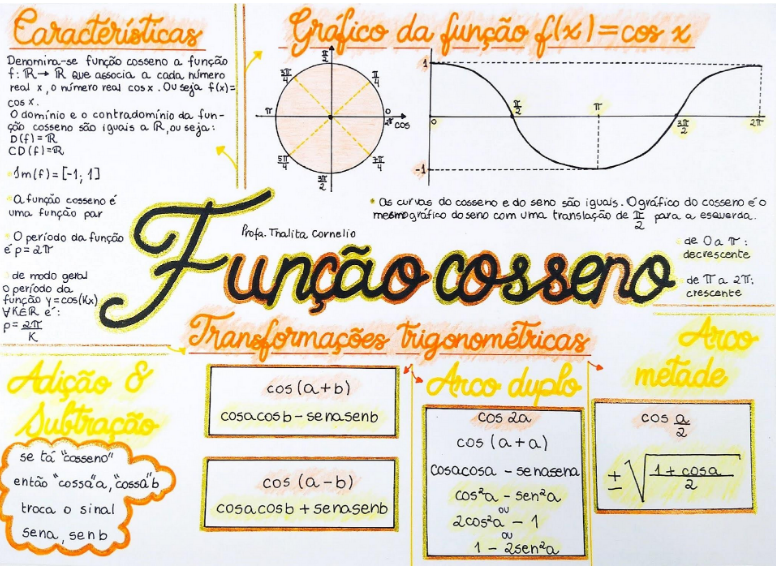 Características
Denomina-se função cosseno a função
f: ℝ→ ℝ que associa a cada número
real x, o número real cos x. Ou seja f(x)=
cos x.
O domínio e o contradomínio da fun-
ção cosseno são iguais a ℝ, ou seja:
D(f)=ℝ
CD(f)=ℝ
Im(f)=[-1; 1]
A função cosseno é
uma função par
O período da função
é p=2π
de modo geral
o período da
função y=cos(Kx)
∀KEℝ é:
p= 2π/K
Gráfico da função f(x)=cos x
π/2
3π/4
π/4
π
0
2π
cos
5π/4
7π/4
3π/2
1
0
π/2
π
3π/2
2π
-1
* As curvas do cosseno e do seno são iguais. O gráfico do cosseno é o
mesmo gráfico do seno com uma translação de π/2 para a esquerda.
de 0 a π:
decrescente
de π a 2π:
crescente
Profa. Thalita Cornelio
Função cosseno
Transformações trigonométricas
Adição &
Subtração
se tá "cosseno"
então "cossa"a, "cossa"b
troca o sinal
sena, senb
cos (a+b)
cosacosb - senasenb
cos (a-b)
cosacosb + senasenb
Arco duplo
cos 2a
cos (a+a)
cosacosa - senasena
cos²a - sen²a
ou
2cos²a - 1
ou
1 - 2sen²a
Arco
metade
cos a/2
± √(1+cosa/2)